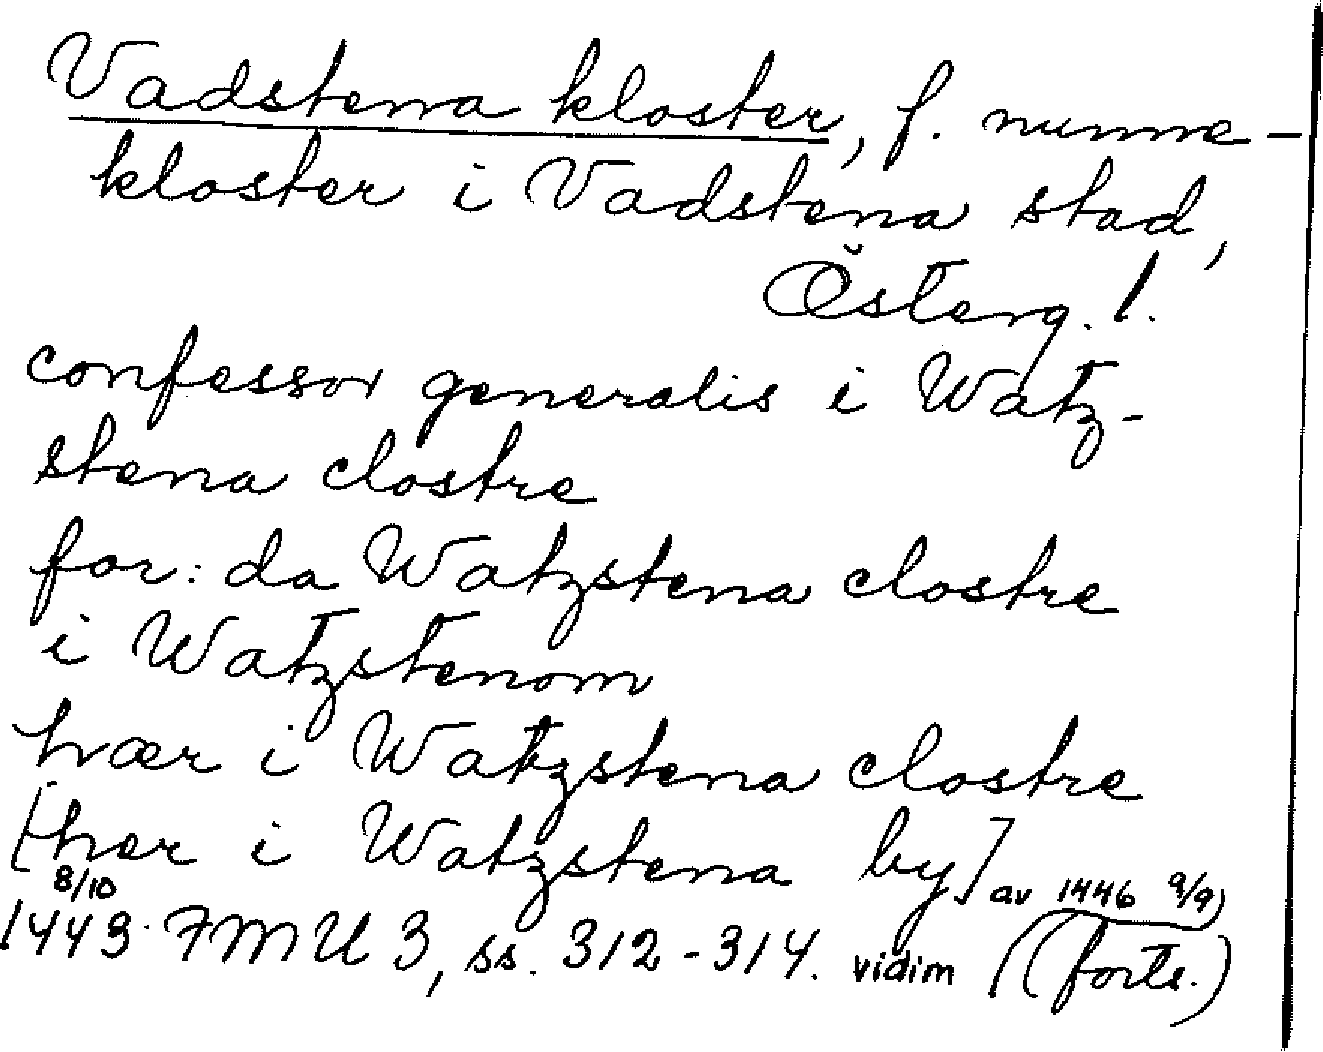 Vadstena kloster, f. nunne-
kloster i Vadstena stad,
Österg. l.
confessor generalis i Watz-
stena clostre
for: da Watzstena clostre
i Watzstenom
hvær i Watzstena clostre
[hær i Watzstena by] av 1446 9/9)
8/10
1443. FMU 3, ss. 312-314. vidim (forts.)